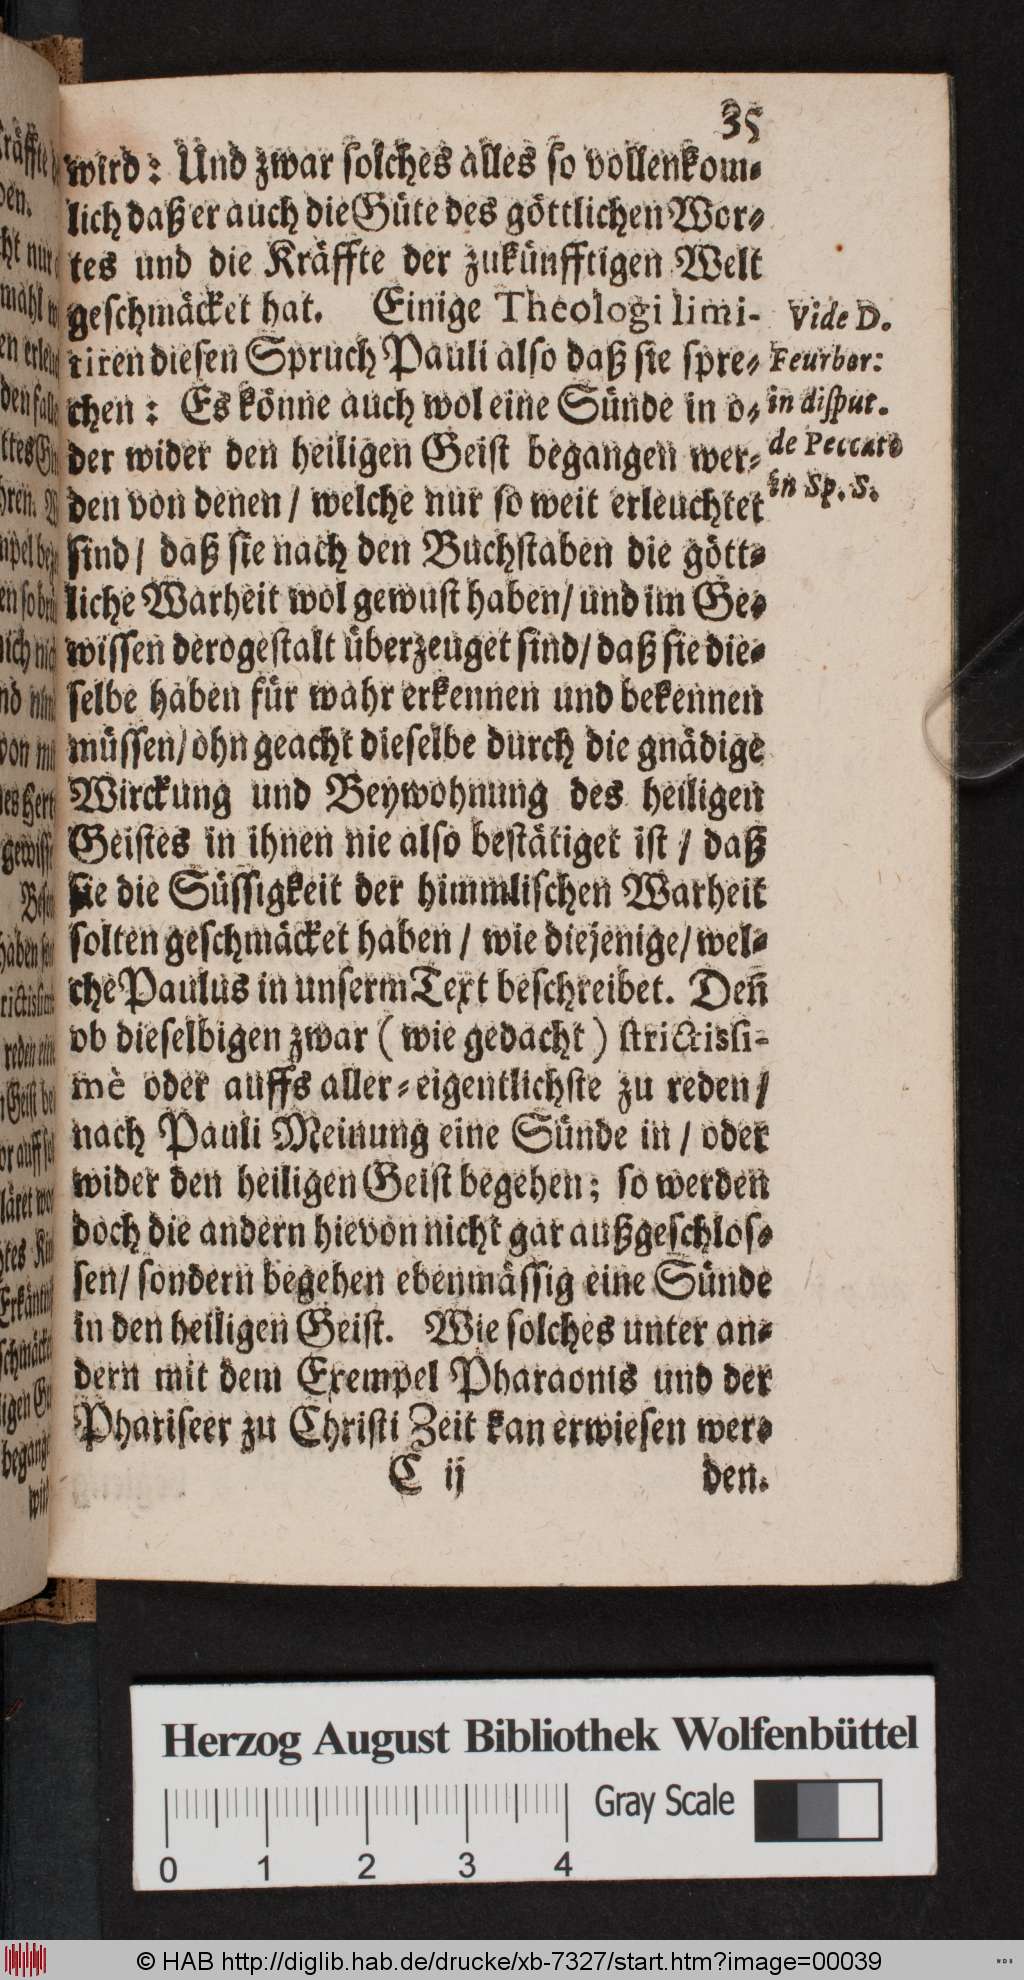 35
wird: Und zwar solches alles so vollenkom-
lich daß er auch die Güte des göttlichen Wor-
tes und die Kräffte der zukünfftigen Welt
geschmäcket hat. Einige Theologi limi-
tiren diesen Spruch Pauli also daß sie spre-
chen: Es könne auch wol eine Sünde in o-
der wider den heiligen Geist begangen wer-
den von denen / welche nur so weit erleuchtet
sind / daß sie nach den Buchstaben die gött-
liche Warheit wol gewust haben / und im Ge-
wissen derogestalt überzeuget sind / daß sie die-
selbe haben für wahr erkennen und bekennen
müssen / ohn geacht dieselbe durch die gnädige
Wirckung und Beywohnung des heiligen
Geistes in ihnen nie also bestätiget ist / daß
sie die Süssigkeit der himmlischen Warheit
solten geschmäcket haben / wie diejenige / wel-
che Paulus in unserm Text beschreibet. Deñ
ob dieselbigen zwar ( wie gedacht ) strictissi-
mè oder auffs aller-eigentlichste zu reden /
nach Pauli Meinung eine Sünde in / oder
wider den heiligen Geist begehen; so werden
doch die andern hievon nicht gar außgeschlos-
sen / sondern begehen ebenmässig eine Sünde
in den heiligen Geist. Wie solches unter an-
dern mit dem Exempel Pharaonis und der
Phariseer zu Christi Zeit kan erwiesen wer-
C ij den.
Vide D.
Feurbor:
in disput.
de Peccato
in Sp. S.
Herzog August Bibliothek Wolfenbüttel
Gray Scale
0 1 2 3 4
© HAB http://diglib.hab.de/drucke/xb-7327/start.htm?image=00039